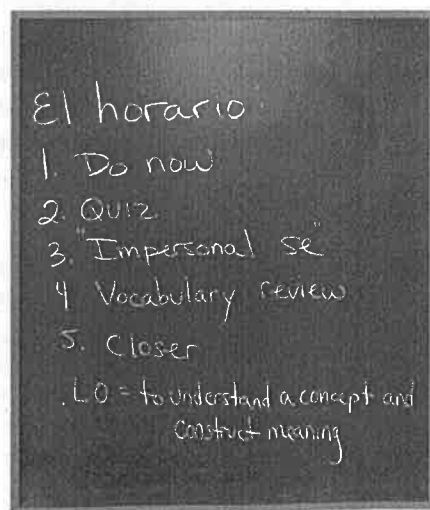 El horario
1. Do now
2. Quiz
3. "Impersonal se"
4 Vocabulary review
5. Closer
. LO = to understand a concept and
construct meaning